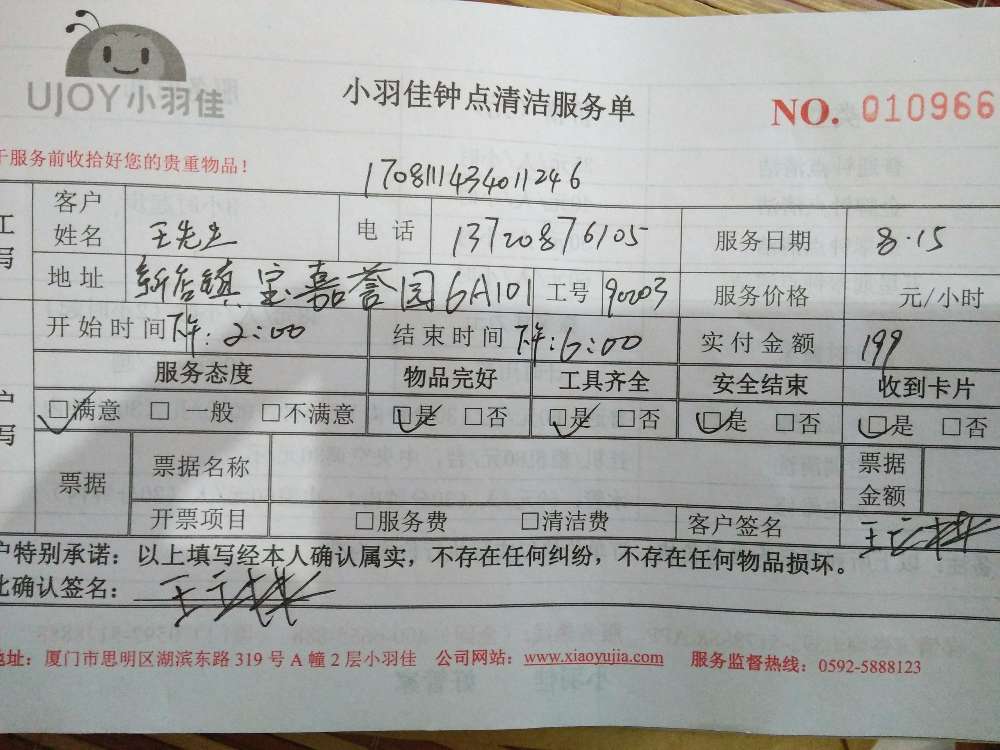 UJOY小羽佳
小羽佳钟点清洁服务单
NO. 010966
于服务前收拾好您的贵重物品！
1708111434011246
工 写
客户姓名 王先生 电 话 13720876105 服务日期 8.15
地 址 新店镇宝嘉誉园6A101 工号 90203 服务价格 元/小时
开始时间 下午:2:00 结束时间 下午:6:00 实付金额 199
服务态度 物品完好 工具齐全 安全结束 收到卡片
户 写
□满意 □ 一般 □不满意 □是 □否 □是 □否 □是 □否 □是 □否
票据 票据名称 票据金额
开票项目 □服务费 □清洁费 客户签名
户特别承诺：以上填写经本人确认属实，不存在任何纠纷，不存在任何物品损坏。
此确认签名：
地址：厦门市思明区湖滨东路 319 号 A 幢 2 层小羽佳 公司网站：www.xiaoyujia.com 服务监督热线：0592-5888123